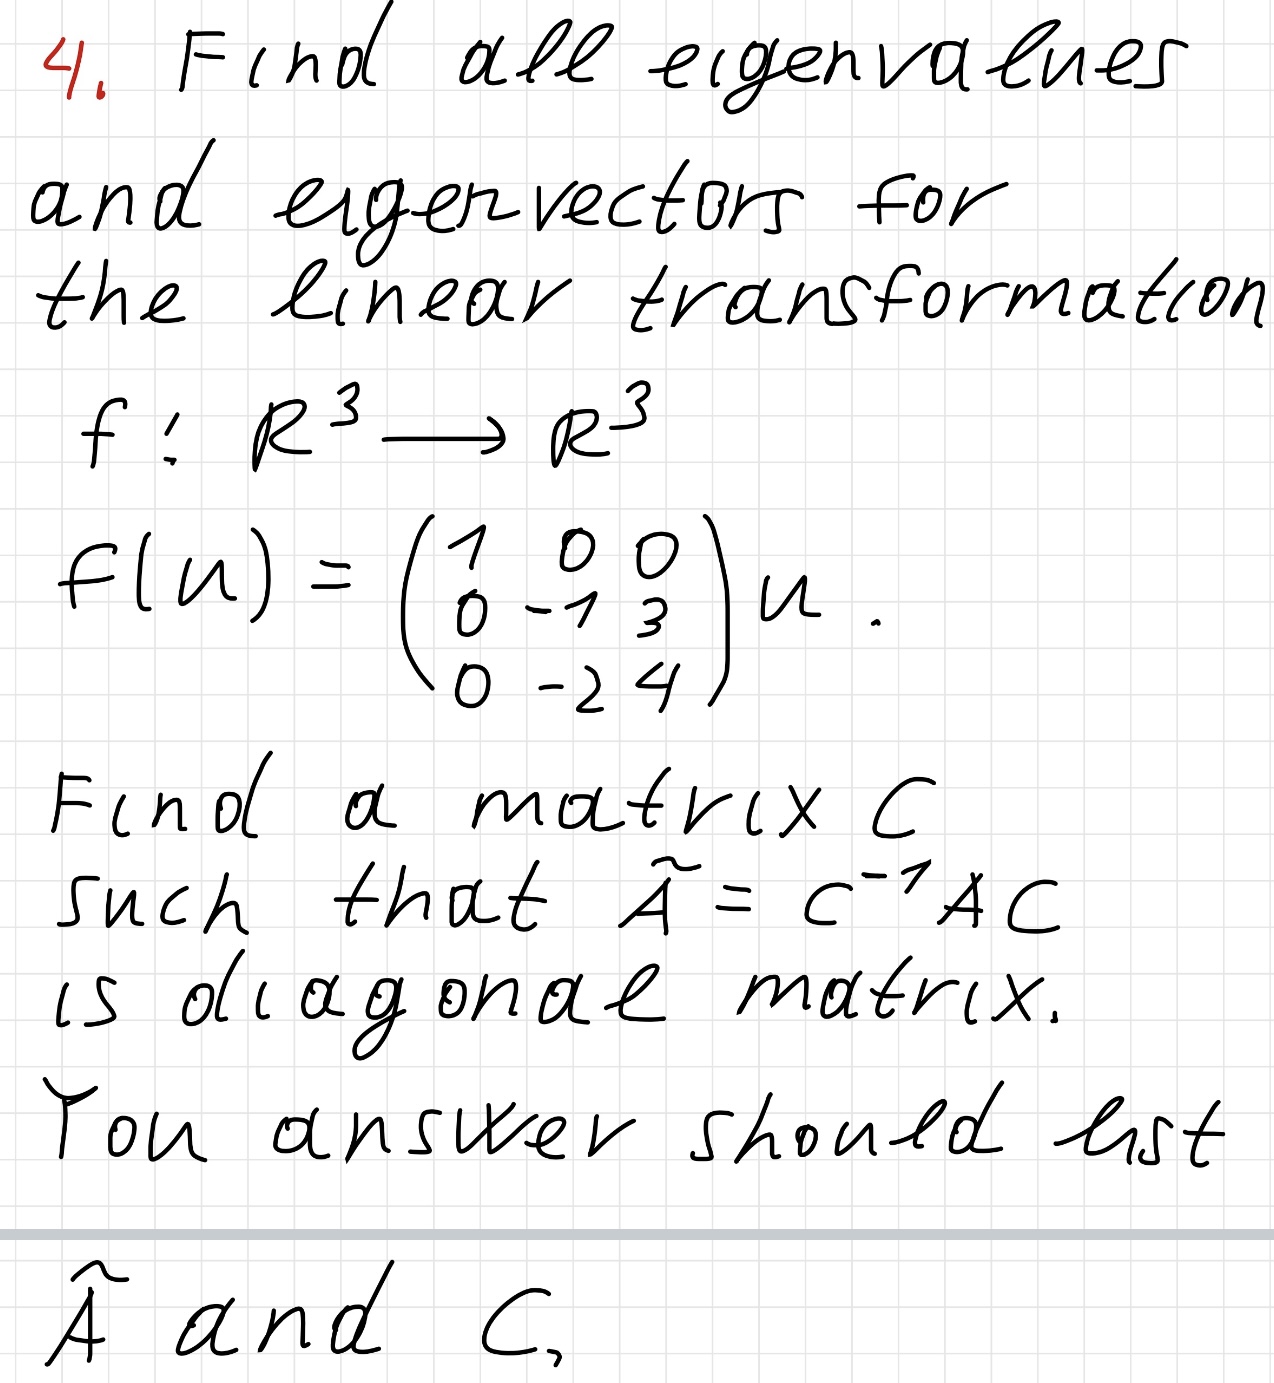 4. Find all eigenvalues
and eigenvectors for
the linear transformation
f: R³ → R³
f(u) = (1 0 0
0 -1 3
0 -2 4) u.
Find a matrix C
such that Ã = C⁻¹AC
is diagonal matrix.
You answer should list
Ã and C,